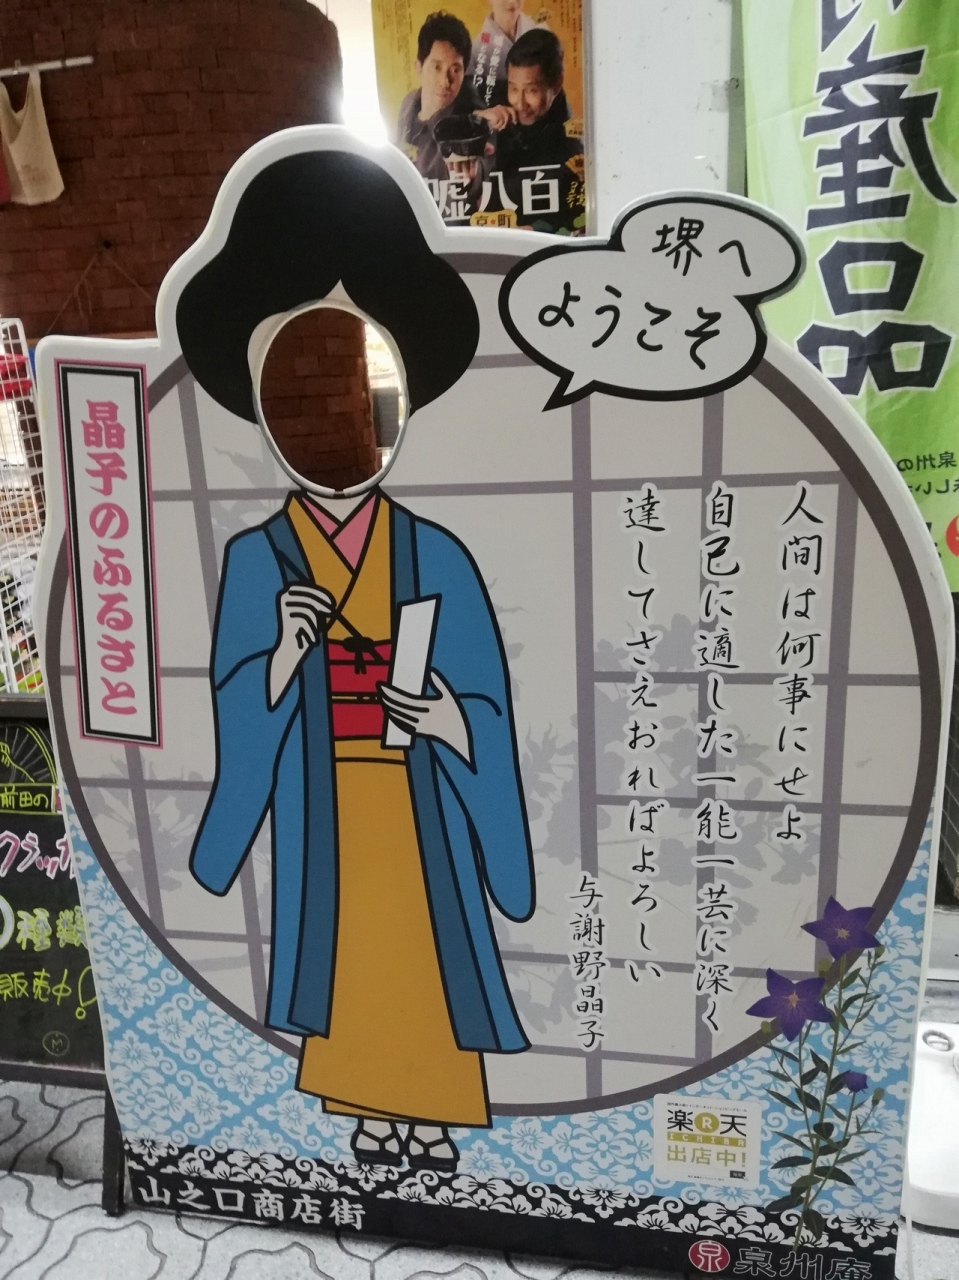 嘘八百
京町
堺へ
ようこそ
産品
晶子のふるさと
人間は何事にせよ
自己に適した一能一芸に深く
達してさえおればよろしい
与謝野晶子
前田の
クラッカ
種類
販売中!
楽R天
ICHIBA
出店中!
山之口商店街
泉 泉州庵